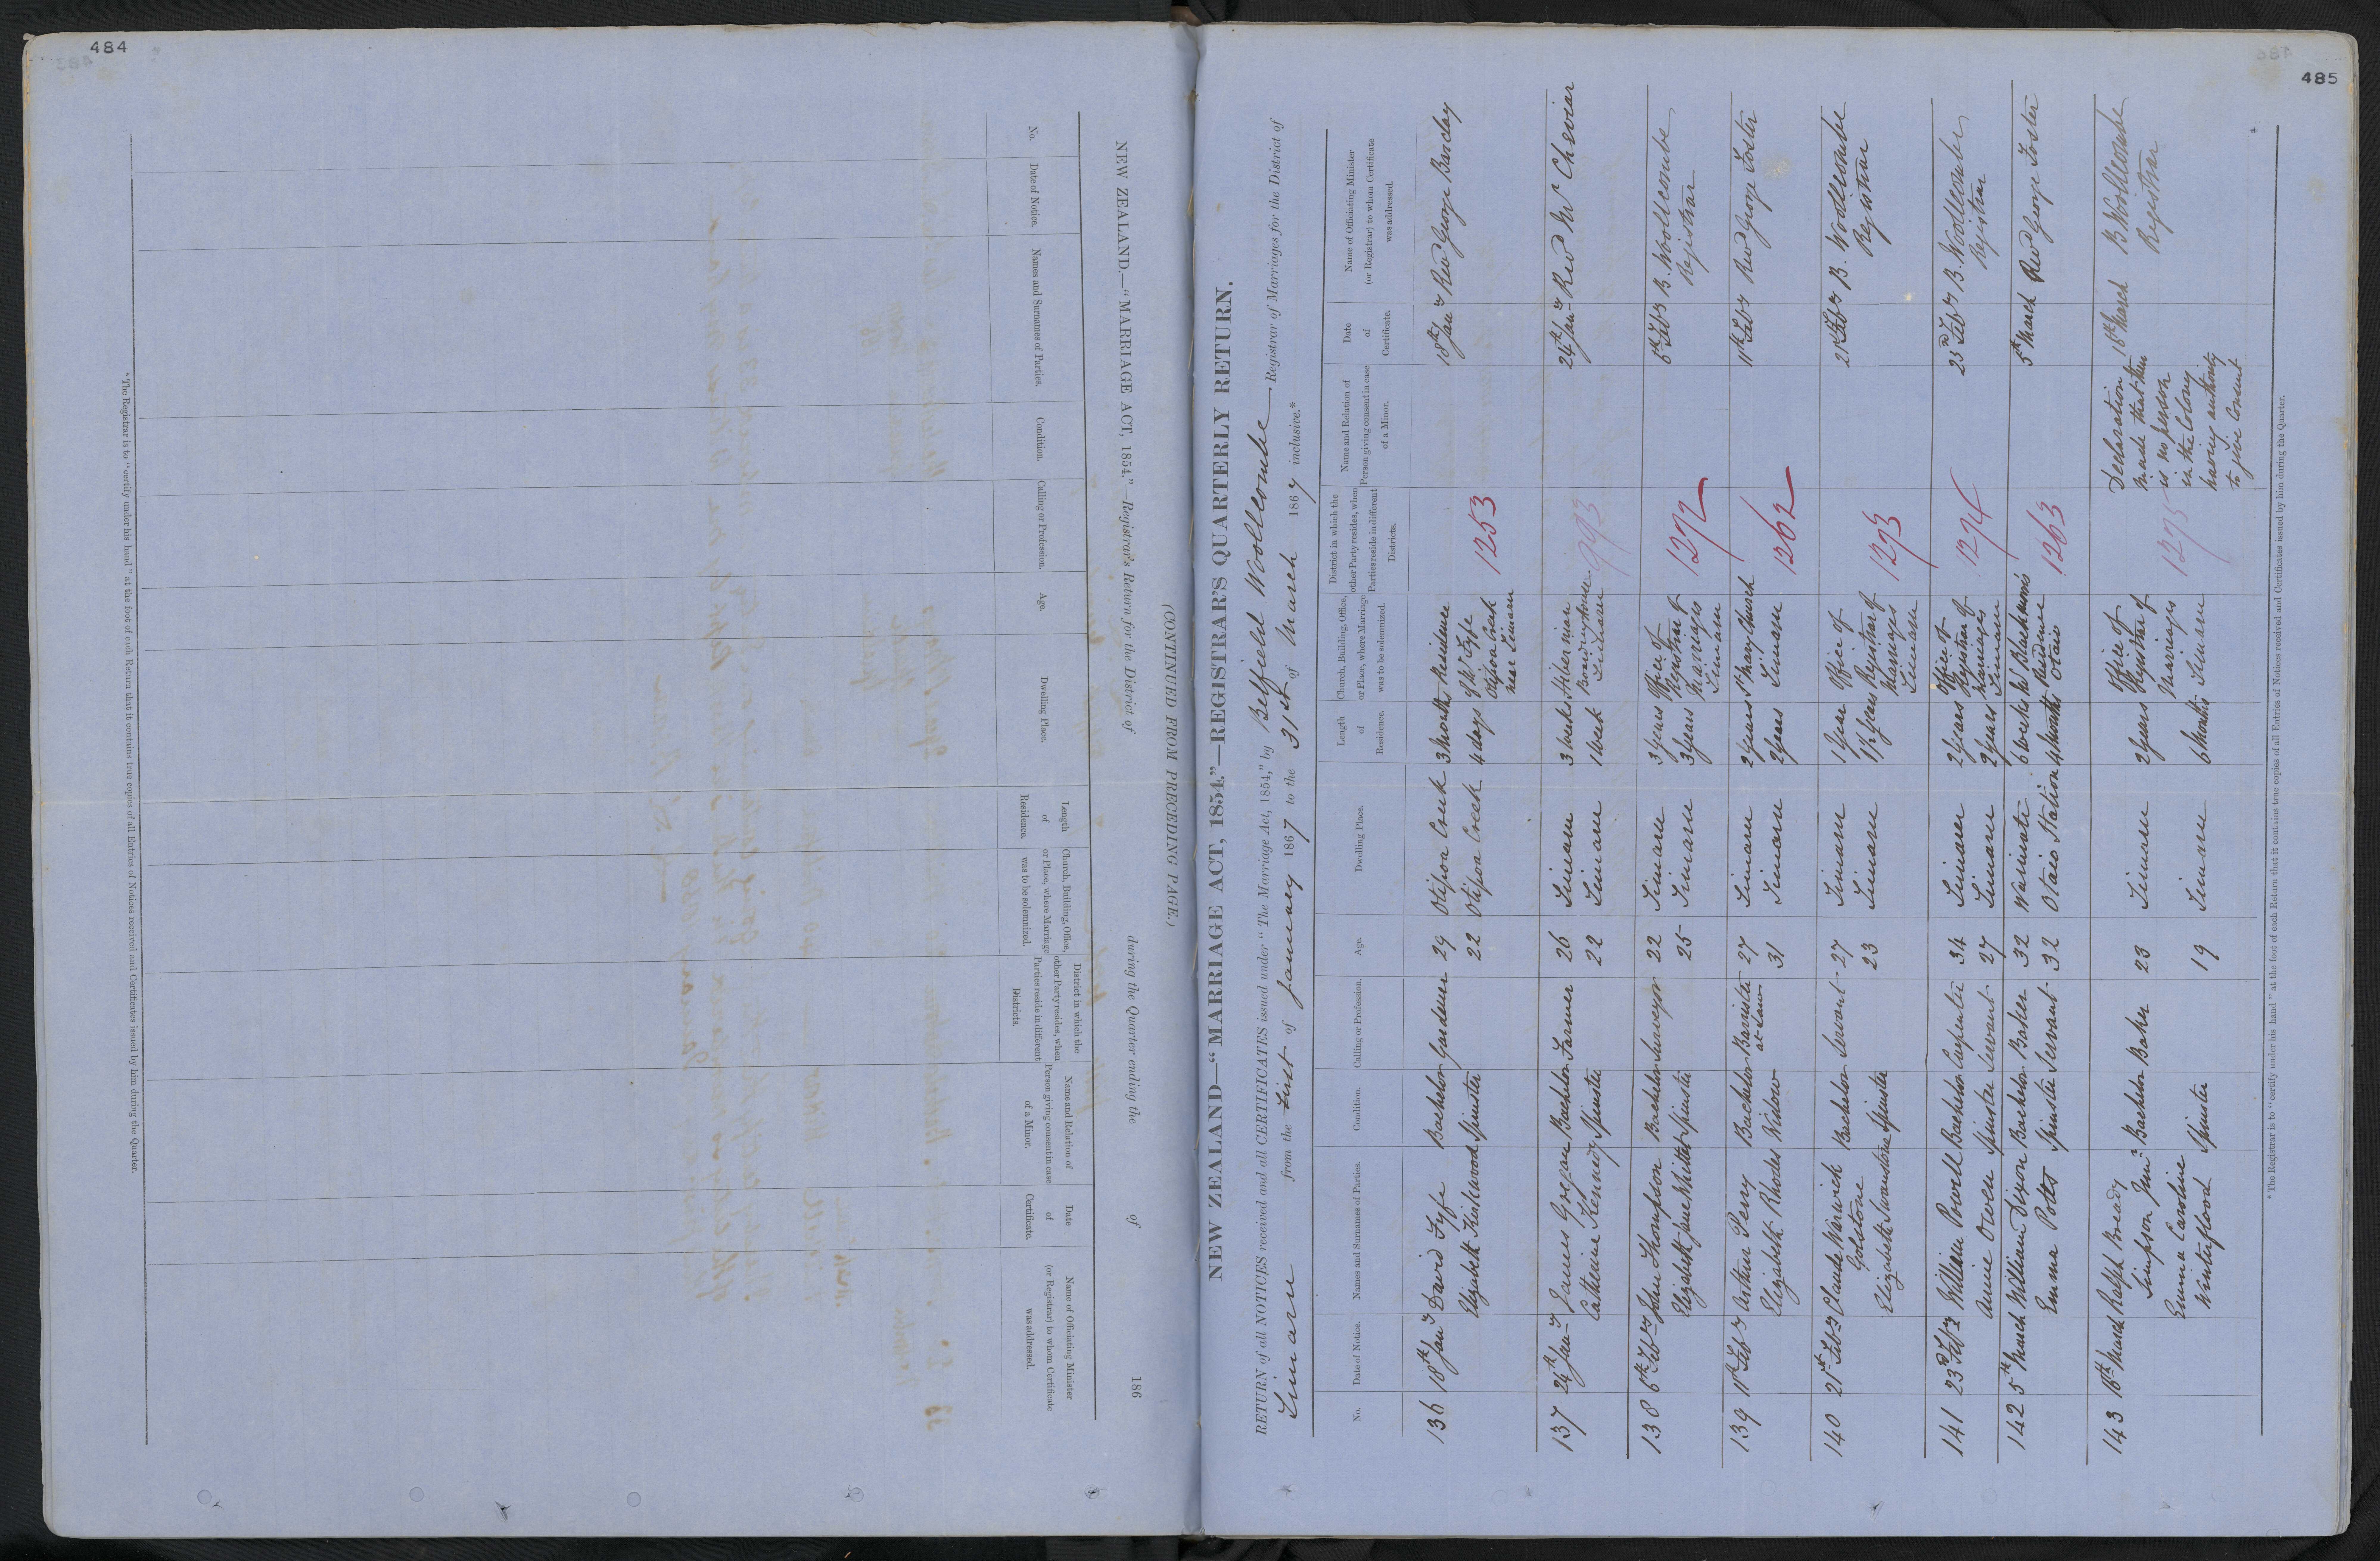 484
NEW ZEALAND.—"MARRIAGE ACT, 1854."—Registrar's Return for the District of during the Quarter ending the of 186
(CONTINUED FROM PRECEDING PAGE.)
No.
Date of Notice.
Names and Surnames of Parties.
Condition.
Calling or Profession.
Age.
Dwelling Place.
Length
of
Residence.
Church, Building, Office,
or Place, where Marriage
was to be solemnized.
District in which the
other Party resides, when
Parties reside in different
Districts.
Name and Relation of
Person giving consent in case
of a Minor.
Date
of
Certificate.
Name of Officiating Minister
(or Registrar) to whom Certificate
was addressed.
* The Registrar is to "certify under his hand" at the foot of each Return that it contains true copies of all Entries of Notices received and Certificates issued by him during the Quarter.
485
NEW ZEALAND—"MARRIAGE ACT, 1854."—REGISTRAR'S QUARTERLY RETURN.
RETURN of all NOTICES received and all CERTIFICATES issued under "The Marriage Act, 1854," by Belfield Woollcombe Registrar of Marriages for the District of
Timaru from the First of January 1867 to the 31st of March 1867 inclusive.*
No.
Date of Notice.
Names and Surnames of Parties.
Condition.
Calling or Profession.
Age.
Dwelling Place.
Length
of
Residence.
Church, Building, Office,
or Place, where Marriage
was to be solemnized.
District in which the
other Party resides, when
Parties reside in different
Districts.
Name and Relation of
Person giving consent in case
of a Minor.
Date
of
Certificate.
Name of Officiating Minister
(or Registrar) to whom Certificate
was addressed.
136 18th Jany David Fyfe Bachelor Gardener 29 Otipoa Creek 3 months Residence 18th Jany Revd George Barclay
Elizabeth Spinster 22 Otipoa Creek 4 days of Mr Fyfe
Otipoa Creek 1253
near Timaru
137 24th Jany James Gregan Bachelor Farmer 26 Timaru 3 weeks Hibernian 24th Jany Revd Mr Cherviar
Catherine Kennedy Spinster 22 Timaru 1 week Boarding house
Timaru 993
138 6th Feby John Thompson Bachelor Surveyor 22 Timaru 3 years Office of 6th Feby B. Woollcombe
Elizabeth Jane Spinster 25 Timaru 3 years Registrar of Registrar
Marriages 1272
Timaru
139 11th Feby Arthur Perry Bachelor Barrister 27 Timaru 2 years St Mary Church 11th Feby Revd George Foster
at Law
Elizabeth Rhodes Widow 31 Timaru 2 years Timaru 1262
140 21st Feby Claude Warwick Bachelor Servant 27 Timaru 1 year Office of 21st Feby B. Woollcombe
Golstone Registrar
Elizabeth Swanston Spinster 23 Timaru 1½ years Registrar of
Marriages 1273
Timaru
141 23rd Feby William Powell Bachelor Carpenter 34 Timaru 2 years Office of 23rd Feby B. Woollcombe
Annie Owen Spinster Servant 27 Timaru 2 years Registrar of Registrar
Marriages 1274
Timaru
142 5th March William Dixon Bachelor Baker 32 Waimate 6 weeks Mr Parkinson's 5th March Revd George Foster
Emma Potts Spinster Servant 32 Otaio Station 4 months Residence
Otaio 1263
143 18th March Ralph Bready Bachelor Baker 23 Timaru 2 years Office of Declaration 18th March B Woollcombe
Simpson Junr Registrar of made that there Registrar
Emma Caroline Marriages is no person
Winterflood Spinster 19 Timaru 6 months Timaru 1275 in the Colony
having authority
to give Consent
* The Registrar is to "certify under his hand" at the foot of each Return that it contains true copies of all Entries of Notices received and Certificates issued by him during the Quarter.